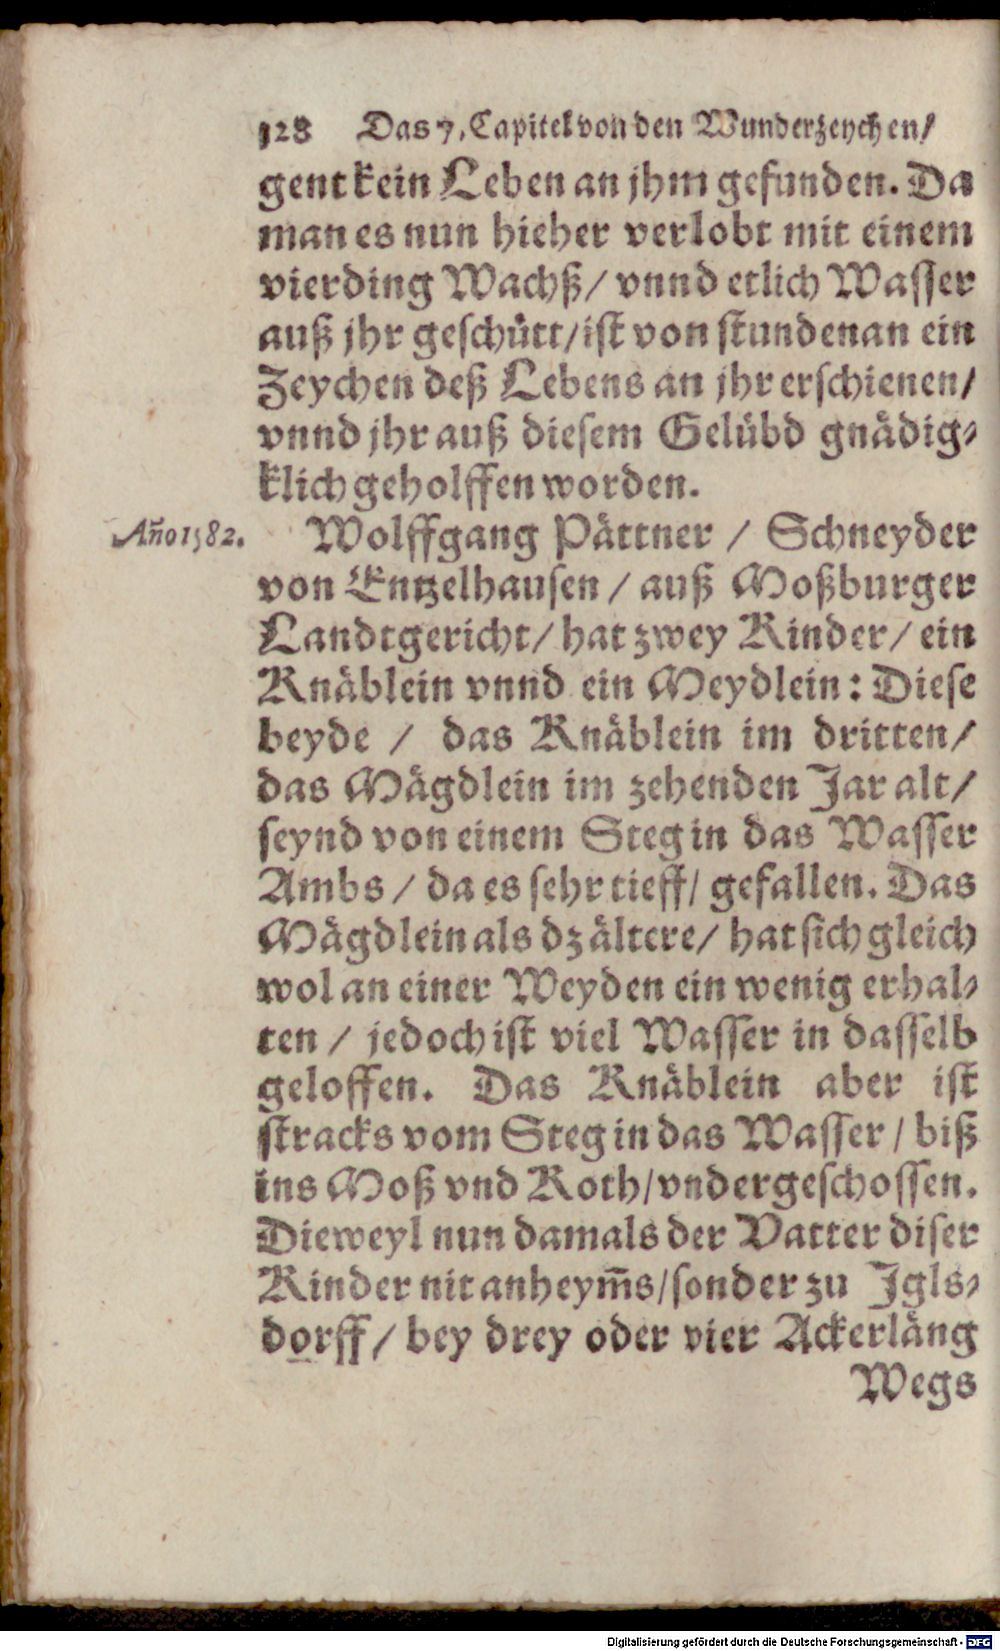 128 Das 7. Capitel von den Wunderzeychen/
gent kein Leben an jhm gefunden. Da
man es nun hieher verlobt mit einem
vierding Wachß/ vnnd etlich Wasser
auß jhr geschütt/ ist von stundenan ein
Zeychen deß Lebens an jhr erschienen/
vnnd jhr auß diesem Gelübd gnädig-
klich geholffen worden.
Año 1582.
Wolffgang Pättner / Schneyder
von Entzelhausen / auß Moßburger
Landtgericht/ hat zwey Kinder/ ein
Knäblein vnnd ein Meydlein: Diese
beyde / das Knäblein im dritten/
das Mägdlein im zehenden Jar alt/
seynd von einem Steg in das Wasser
Ambs / da es sehr tieff/ gefallen. Das
Mägdlein als dz ältere/ hat sich gleich
wol an einer Weyden ein wenig erhal-
ten / jedoch ist viel Wasser in dasselb
geloffen. Das Knäblein aber ist
stracks vom Steg in das Wasser / biß
ins Moß vnd Koth/ vndergeschossen.
Dieweyl nun damals der Vatter diser
Kinder nit anheym̃s/ sonder zu Jgls-
dorff / bey drey oder vier Ackerläng
Wegs
Digitalisierung gefördert durch die Deutsche Forschungsgemeinschaft - DFG